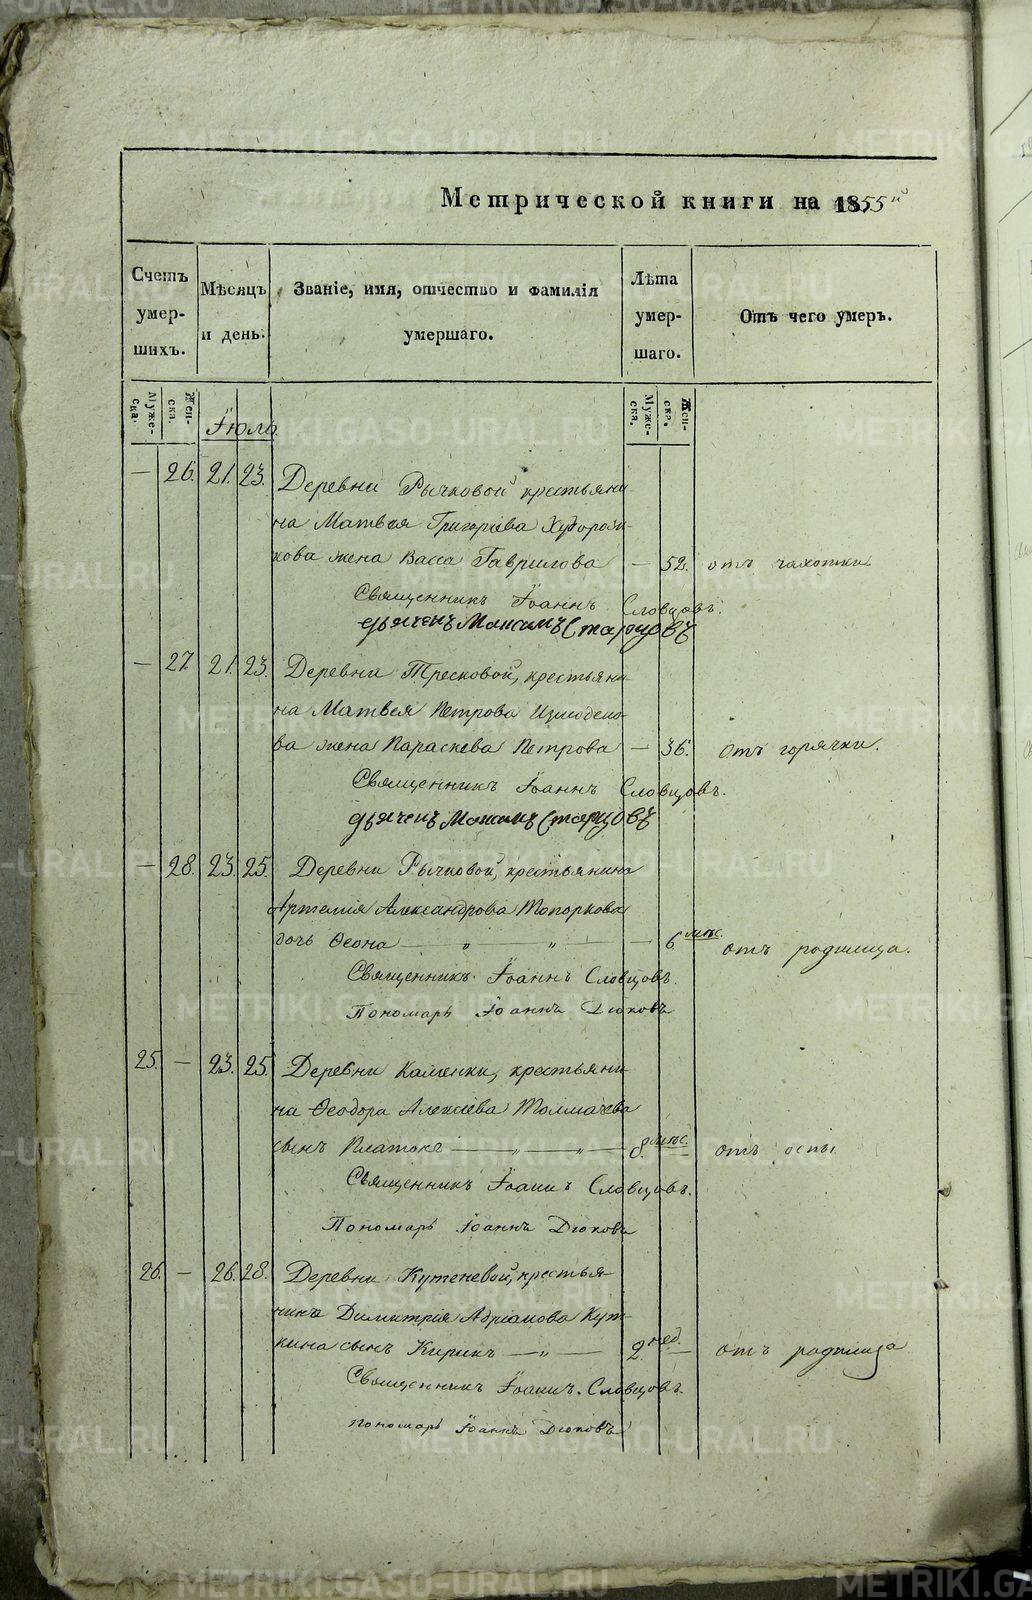 Метрической книги на 1855й
Счетъ умер- шихъ.
Мѣсяцъ и день.
Званіе, имя, отчество и фамилія умершаго.
Лѣта умер- шаго.
Отъ чего умеръ.
Муже- ска.
Жен- ска.
Муже- ска.
Жен- ска.
Іюль.
— 26. 21. 23. Деревни Рычковой крестьяни-
на Матвея Григоріева
кова жена Васса Гаврилова — 52. отъ чахотки
Священникъ Іоаннъ Словцовъ.
дьячекъ Максимъ Старцовъ
— 27. 21. 23. Деревни Тресковой, крестьяни-
на Матвея Петрова Измоденo-
ва жена Параскева Петрова — 36. отъ горячки.
Священникъ Іоаннъ Словцовъ.
дьячекъ Максимъ Старцовъ
— 28. 23. 25. Деревни Рычковой, крестьянина
Артемія Александрова Топоркова
дочь Ѳеона — „ — „ — — 6. мѣс. отъ родимца.
Священникъ Іоаннъ Словцовъ.
Пономарь Іоаннъ Дюковъ
25. — 23. 25. Деревни Каменки, крестьяни-
на Ѳеодора Алексіева Толмачева
сынъ Платонъ — „ — „ — 8. мѣс. — отъ оспы.
Священникъ Іоаннъ Словцовъ.
Пономарь Іоаннъ Дюковъ
26. — 26. 28. Деревни Кутеневой, крестья-
нина Димитрія Адріанова Кут-
кина сынъ Кирикъ — „ — 2. нед. — отъ родимца
Священникъ Іоаннъ Словцовъ.
Пономарь Іоаннъ Дюковъ
METRIKI.GASO-URAL.RU